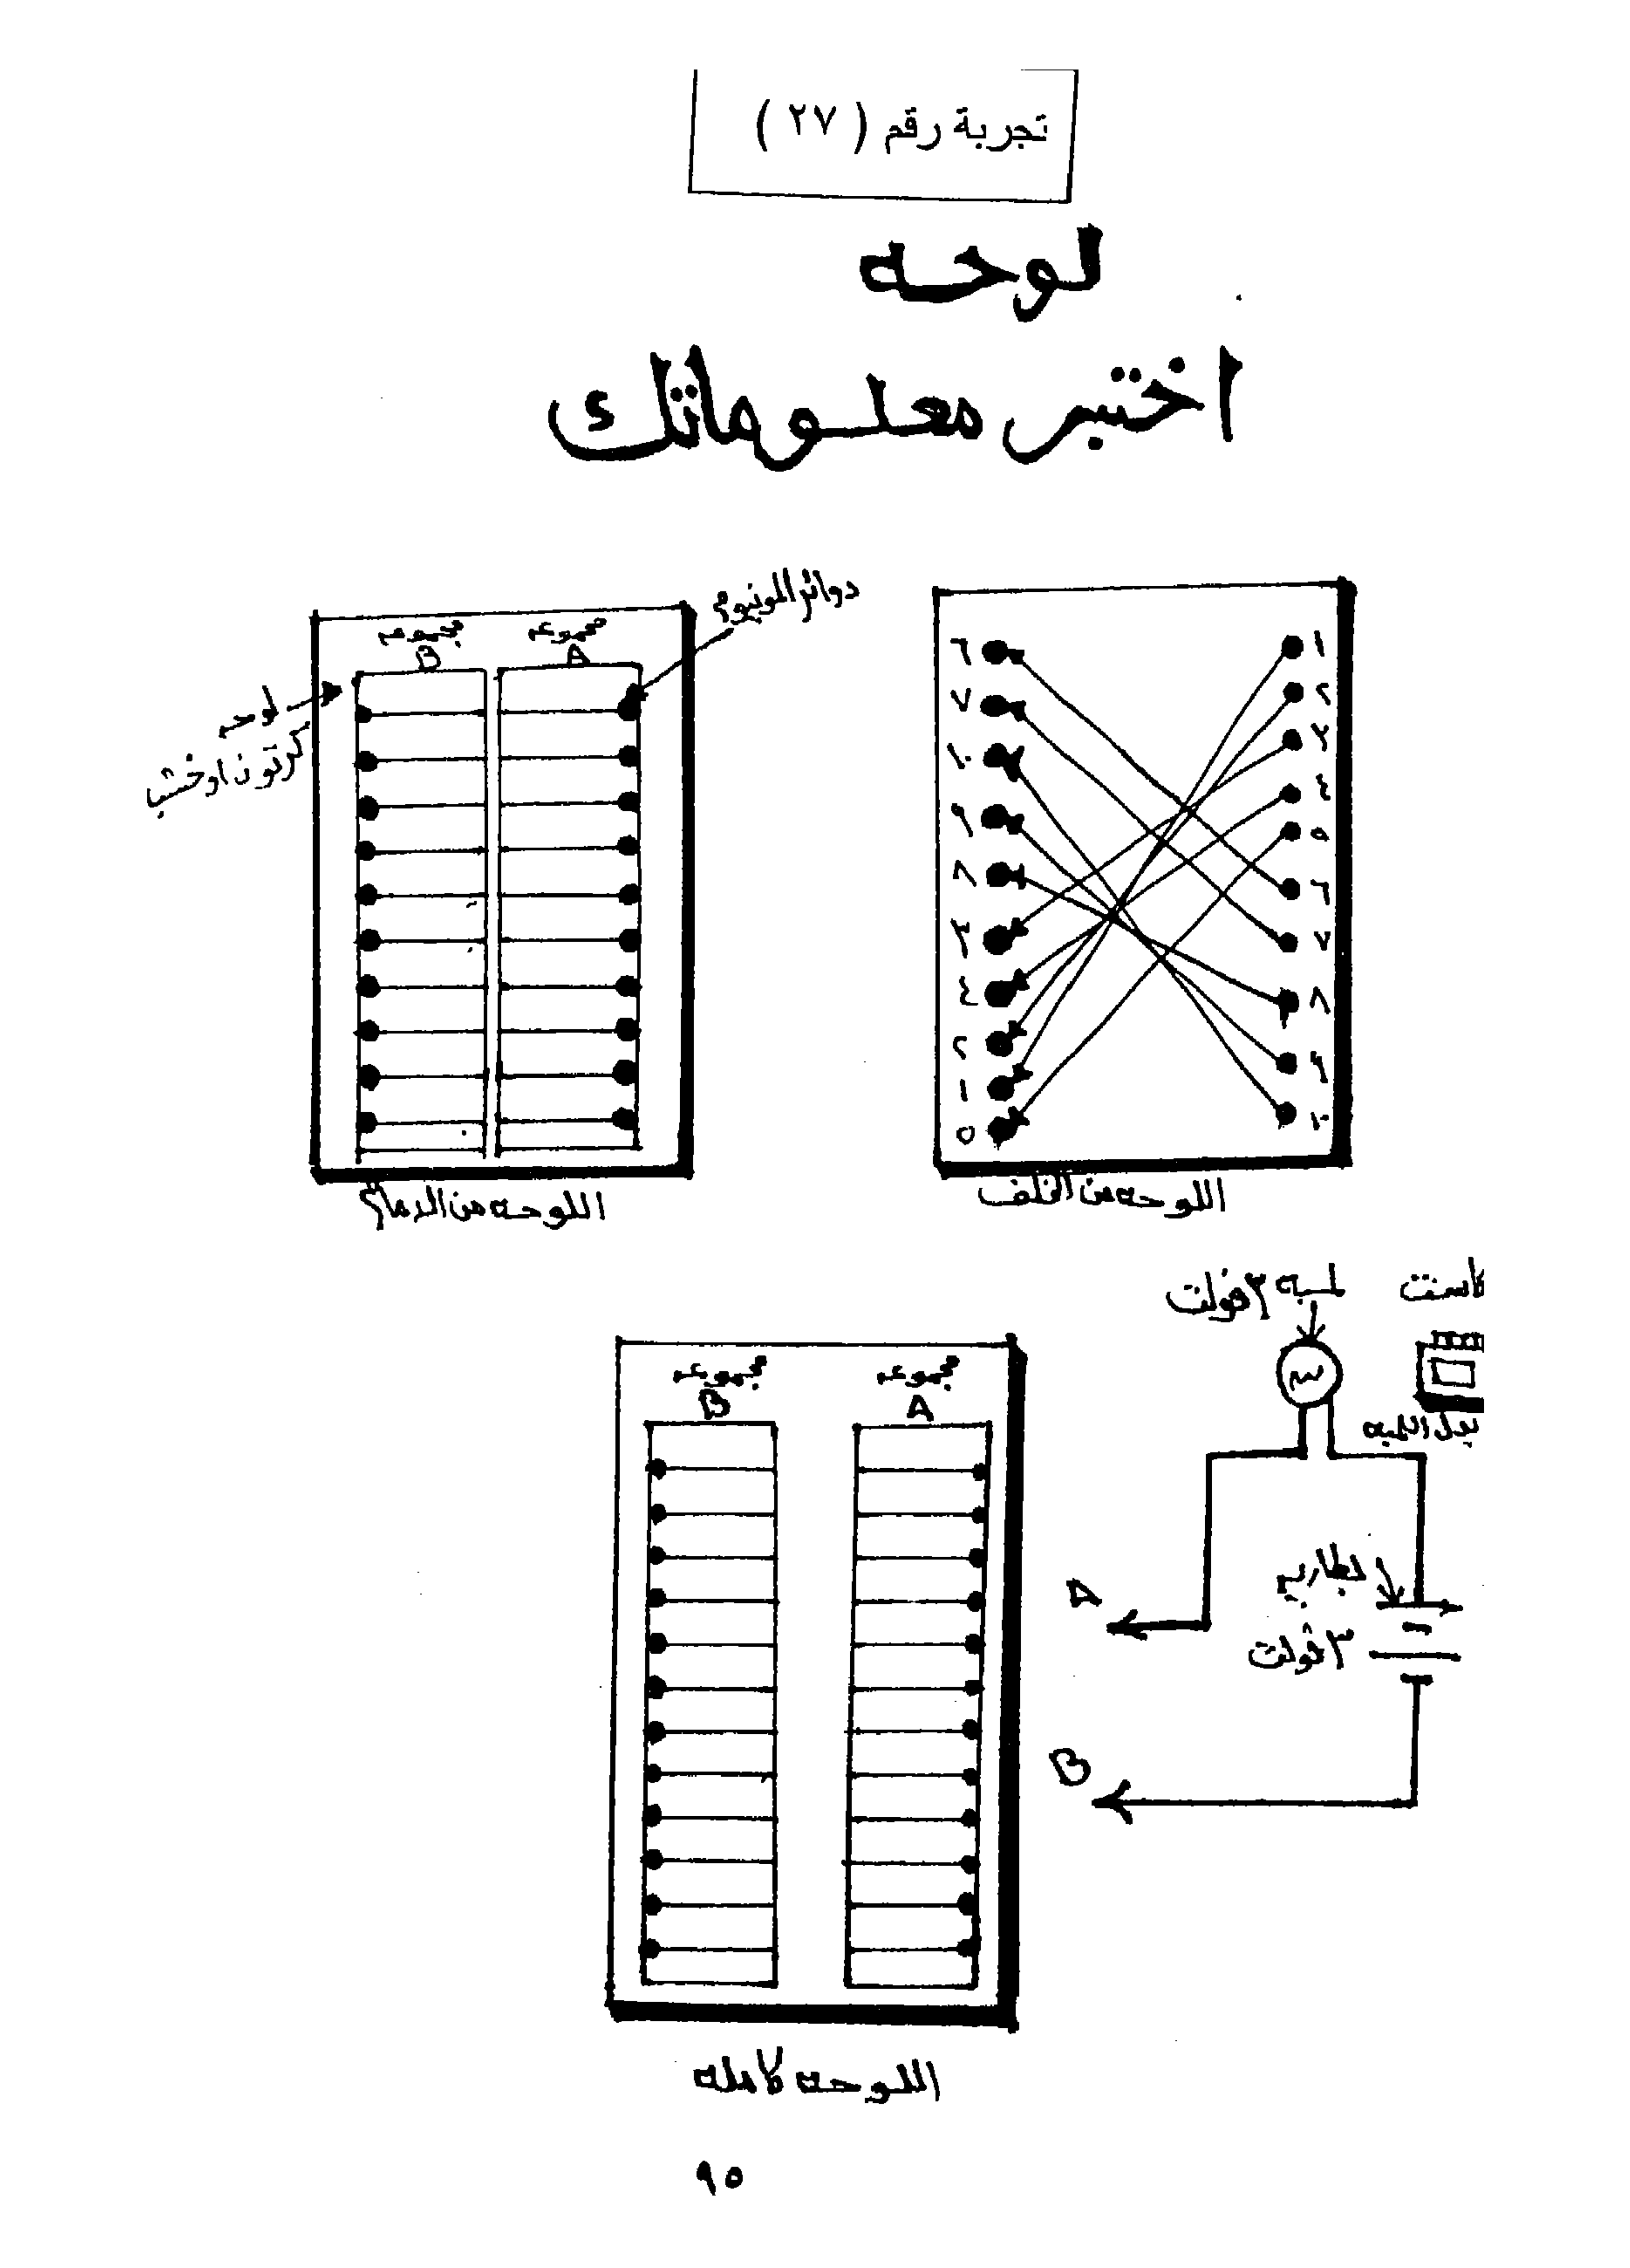 تجربة رقم ( ٢٧ )
لوحه
اختبر معلوماتك
دوائر المونيوم
مجموعه A
مجموعه B
لوحه
كرتون او خشب
اللوحه من الامام
١
٢
٣
٤
٥
٦
٧
٨
٩
١٠
٦
٧
١٠
٩
٨
٣
٤
٢
١
٥
اللوحه من الخلف
كاست
لمبه ٣ فولت
بدل اللمبه
بطاريه
٣ فولت
A
B
مجموعه A
مجموعه B
اللوحه كامله
٩٥